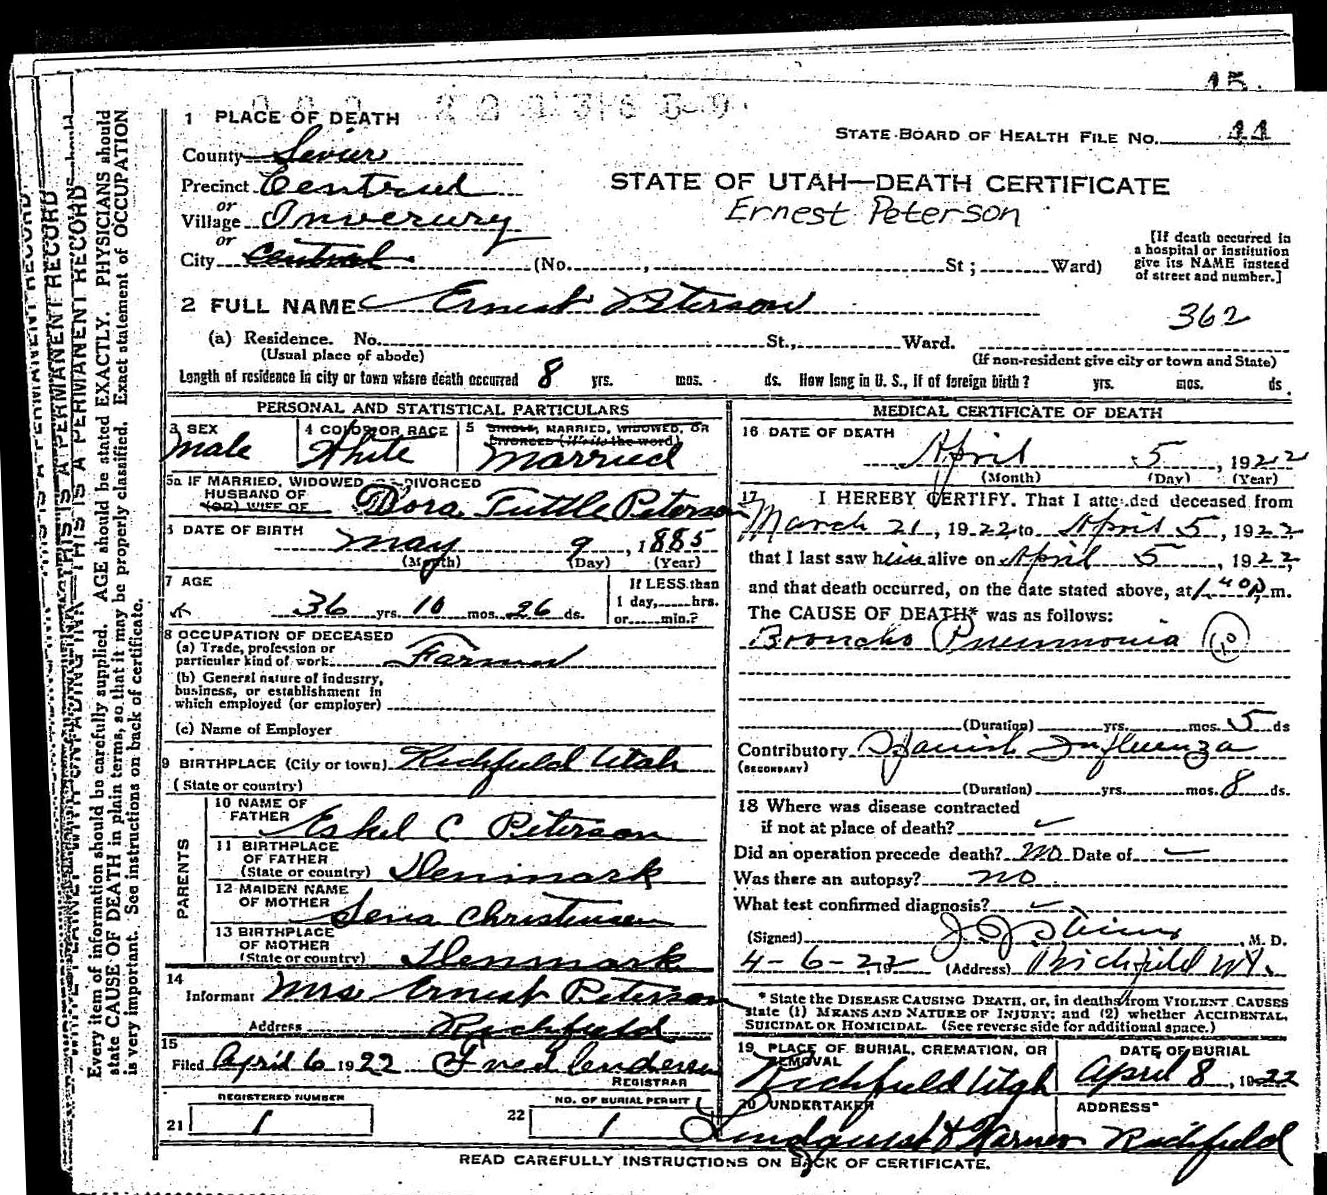 15.
1 PLACE OF DEATH
STATE BOARD OF HEALTH FILE No. 44
County Sevier
Precinct Central
STATE OF UTAH—DEATH CERTIFICATE
or
Village Inverury
Ernest Peterson
or
City Central (No. , St ; Ward)
[If death occurred in
a hospital or institution
give its NAME instead
of street and number.]
2 FULL NAME Ernest Peterson
362
(a) Residence. No. St., Ward.
(Usual place of abode) (If non-resident give city or town and State)
Length of residence in city or town where death occurred 8 yrs. mos. ds. How long in U. S., if of foreign birth? yrs. mos. ds.
PERSONAL AND STATISTICAL PARTICULARS
3 SEX 4 COLOR OR RACE 5 SINGLE, MARRIED, WIDOWED, OR
DIVORCED (Write the word)
Male White Married
5a IF MARRIED, WIDOWED OR DIVORCED
HUSBAND OF
(OR) WIFE OF Dora Tuttle Peterson
6 DATE OF BIRTH
May 9, 1885
(Month) (Day) (Year)
7 AGE If LESS than
36 yrs. 10 mos. 26 ds. 1 day, hrs.
or min.?
8 OCCUPATION OF DECEASED
(a) Trade, profession or
particular kind of work Farmer
(b) General nature of industry,
business, or establishment in
which employed (or employer)
(c) Name of Employer
9 BIRTHPLACE (City or town) Richfield Utah
(State or country)
PARENTS
10 NAME OF
FATHER Eskel C Peterson
11 BIRTHPLACE
OF FATHER
(State or country) Denmark
12 MAIDEN NAME
OF MOTHER Sena Christensen
13 BIRTHPLACE
OF MOTHER
(State or country) Denmark
14
Informant Mrs Ernest Peterson
Address Richfield
15
Filed April 6 1922
REGISTRAR
REGISTERED NUMBER NO. OF BURIAL PERMIT
21 1 22 1
MEDICAL CERTIFICATE OF DEATH
16 DATE OF DEATH
April 5, 1922
(Month) (Day) (Year)
17 I HEREBY CERTIFY, That I attended deceased from
March 21, 1922 to April 5, 1922
that I last saw him alive on April 5, 1922,
and that death occurred, on the date stated above, at 1.40 P. m.
The CAUSE OF DEATH* was as follows:
Broncho Pneumonia
(Duration) yrs. mos. 5 ds
Contributory Spanish Influenza
(SECONDARY)
(Duration) yrs. mos. 8 ds.
18 Where was disease contracted
if not at place of death?
Did an operation precede death? No Date of
Was there an autopsy? No
What test confirmed diagnosis?
(Signed) , M. D.
4-6-22 19 (Address) Richfield Ut.
* State the DISEASE CAUSING DEATH, or, in deaths from VIOLENT CAUSES
state (1) MEANS AND NATURE OF INJURY; and (2) whether ACCIDENTAL,
SUICIDAL OR HOMICIDAL. (See reverse side for additional space.)
19 PLACE OF BURIAL, CREMATION, OR
REMOVAL DATE OF BURIAL
Richfield Utah April 8, 1922
20 UNDERTAKER ADDRESS
Richfield
READ CAREFULLY INSTRUCTIONS ON BACK OF CERTIFICATE.
THIS IS A PERMANENT RECORD
Every item of information should be carefully supplied. AGE should be stated EXACTLY. PHYSICIANS should
state CAUSE OF DEATH in plain terms, so that it may be properly classified. Exact statement of OCCUPATION
is very important. See instructions on back of certificate.